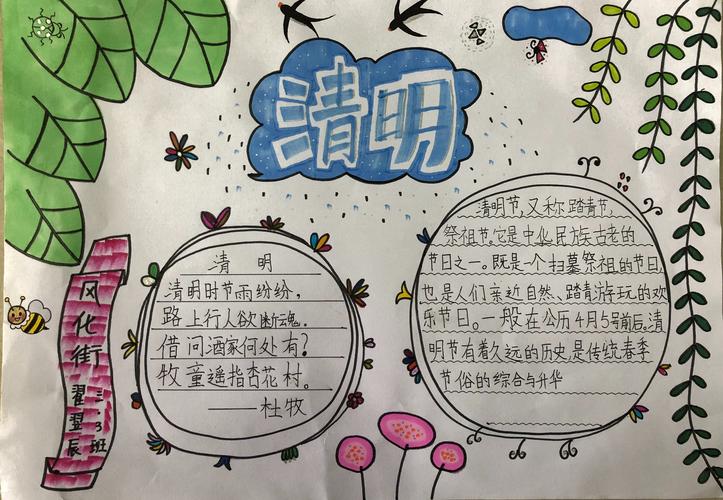 清明
清 明
清明时节雨纷纷，
路上行人欲断魂.
借问酒家何处有？
牧童遥指杏花村。
——杜牧
清明节，又称踏青节，
祭祖节。它是中华民族古老的
节日之一。既是一个扫墓祭祖的节日，
也是人们亲近自然、踏青游玩的欢
乐节日。一般在公历4月5号前后。清
明节有着久远的历史，是传统春季
节俗的综合与升华
风化街
三.3班
翟翌辰